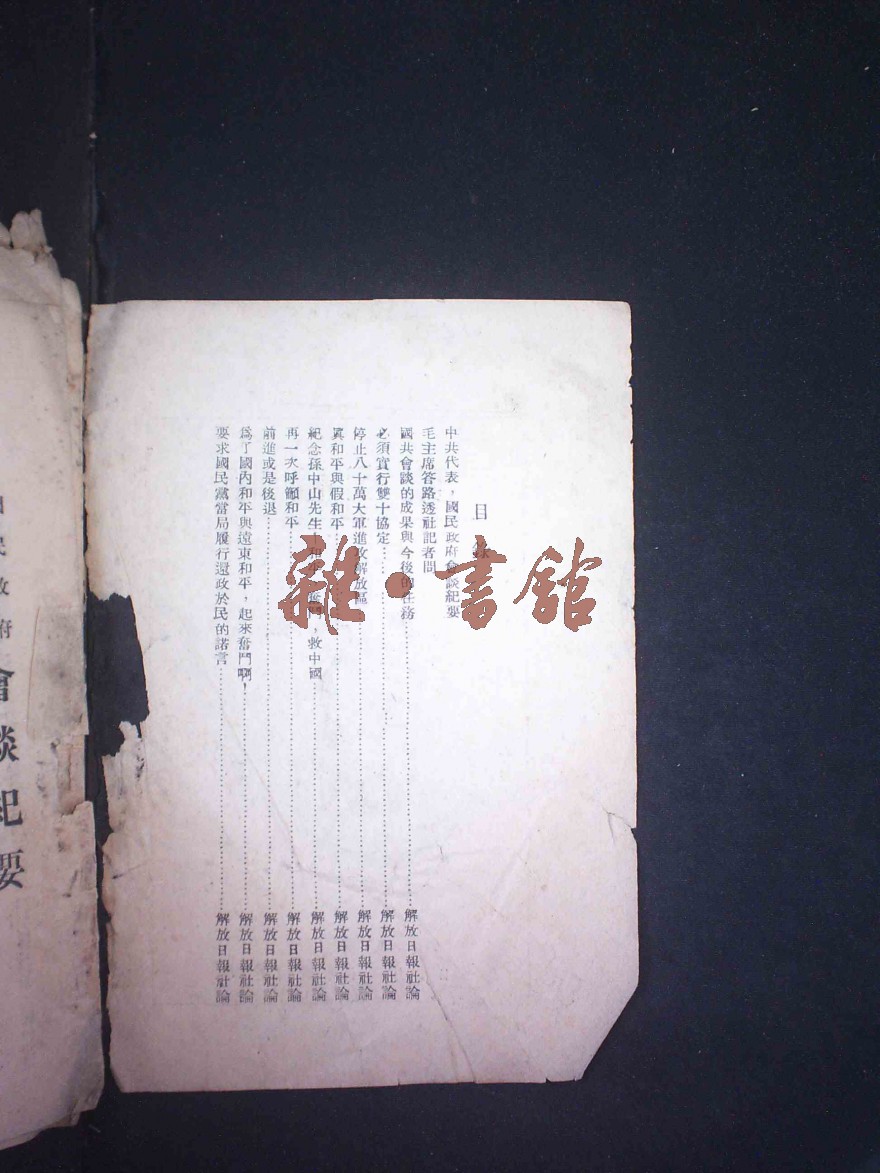 目錄
中共代表，國民政府會談紀要
毛主席答路透社記者問
國共會談的成果與今後的任務 解放日報社論
必須實行雙十協定 解放日報社論
停止八十萬大軍進攻解放區 解放日報社論
眞和平與假和平 解放日報社論
紀念孫中山先生 和平 奮鬥，救中國 解放日報社論
再一次呼籲和平 解放日報社論
前進或是後退 解放日報社論
爲了國內和平與遠東和平，起來奮鬥啊！ 解放日報社論
要求國民黨當局履行還政於民的諾言 解放日報社論
民政府
會談紀要
雜·書館